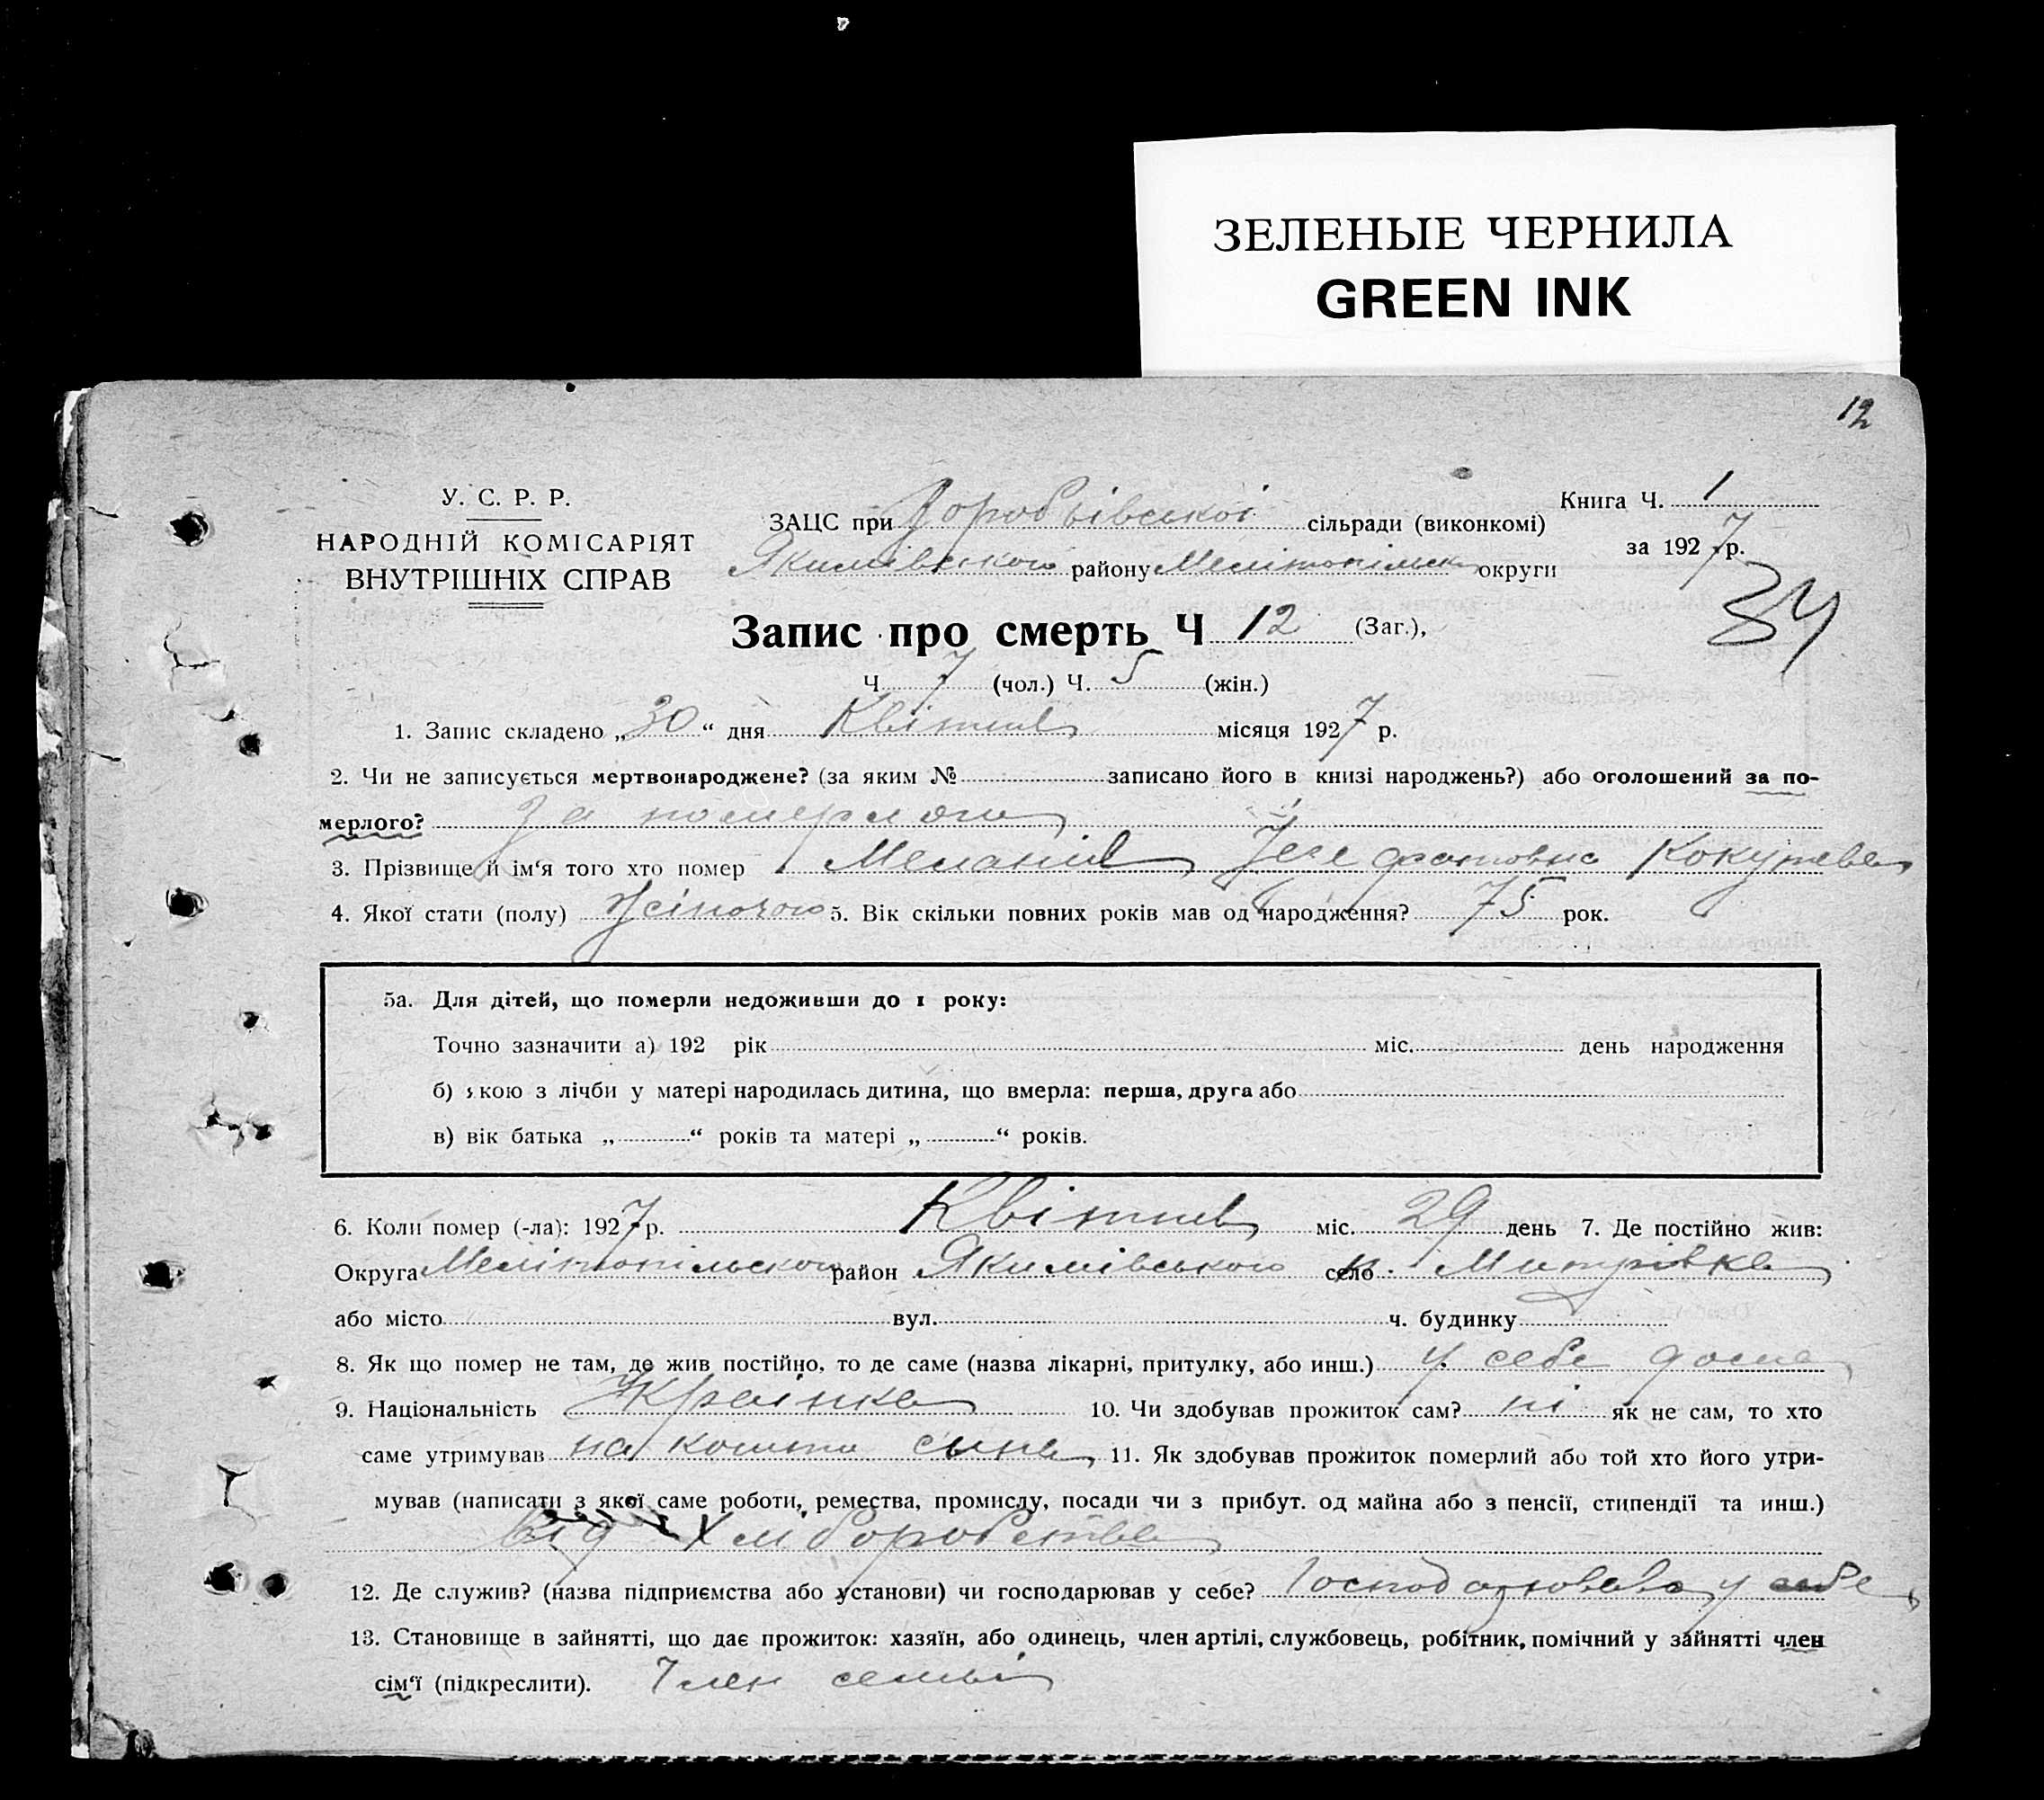 ЗЕЛЕНЫЕ ЧЕРНИЛА
GREEN INK
12
У. С. Р. Р.
НАРОДНІЙ КОМІСАРІЯТ
ВНУТРІШНІХ СПРАВ
Книга Ч. 1
за 1927 р.
34
ЗАЦС при Воробьівської сільради (виконкомі)
Якимівського району Мелітопільськ округи
Запис про смерть Ч 12 (Заг.),
Ч. 7 (чол.) Ч. 5 (жін.)
1. Запис складено „30“ дня Квітня місяця 1927 р.
2. Чи не записується мертвонароджене? (за яким № записано його в книзі народжень?) або оголошений за по-
мерлого? За померлого
3. Прізвище й ім‘я того хто помер Меланія
4. Якої стати (полу) Жіночого 5. Вік скільки повних років мав од народження? 75 рок.
5а. Для дітей, що померли недоживши до 1 року:
Точно зазначити а) 192 рік міс. день народження
б) якою з лічби у матері народилась дитина, що вмерла: перша, друга або
в) вік батька „ “ років та матері „ “ років.
6. Коли помер (-ла): 1927 р. Квітня міс. 29 день 7. Де постійно жив:
Округа Мелітопільского район Якимівського село
або місто вул. ч. будинку
8. Як що помер не там, де жив постійно, то де саме (назва лікарні, притулку, або инш.) у себе дома
9. Національність Украінка 10. Чи здобував прожиток сам? ні як не сам, то хто
саме утримував на кошти сына 11. Як здобував прожиток померлий або той хто його утри-
мував (написати з якої саме роботи, ремества, промислу, посади чи з прибут. од майна або з пенсії, стипендії та инш.)
Від Хлиборобства
12. Де служив? (назва підприємства або установи) чи господарював у себе? Господарювала у себе
13. Становище в зайнятті, що дає прожиток: хазяїн, або одинець, член артілі, службовець, робітник, помічний у зайнятті член
сім‘ї (підкреслити). Член семьі